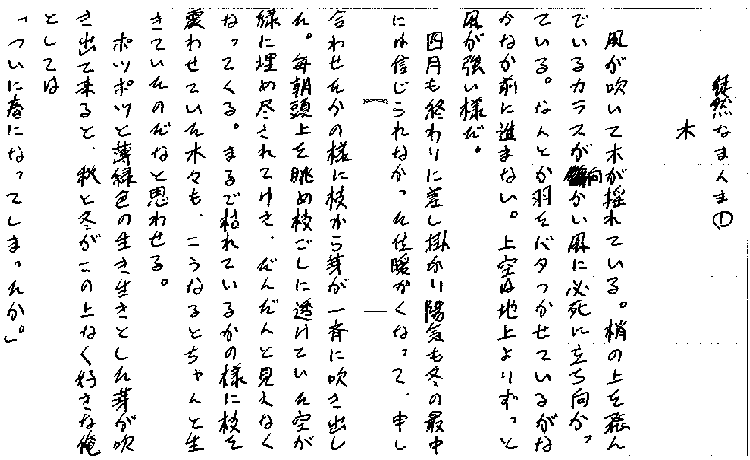 徒然なまんま①
木
風が吹いて木が揺れている。梢の上を飛ん
でいるカラスが向かい風に必死に立ち向かっ
ている。なんとか羽をバタつかせているがな
かなか前に進まない。上空は地上よりずっと
風が強い様だ。
四月も終わりに差し掛かり陽気も冬の最中
には信じられなかった位暖かくなって、申し
合わせたかの様に枝から芽が一斉に吹き出し
た。毎朝頭上を眺め枝ごしに透けていた空が
緑に埋め尽されてゆき、だんだんと見えなく
なってくる。まるで枯れているかの様に枝を
震わせていた木々も、こうなるとちゃんと生
きていたのだなと思わせる。
ポツポツと薄緑色の生き生きとした芽が吹
き出て来ると、秋と冬がこの上なく好きな俺
としては
「ついに春になってしまったか。」